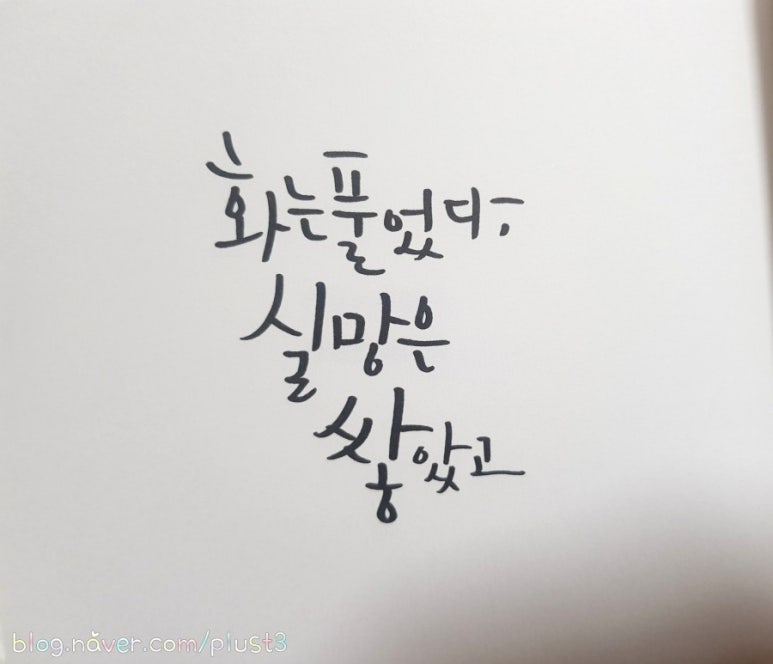 화는 풀었다,
실망은
쌓았고
blog.naver.com/plust3